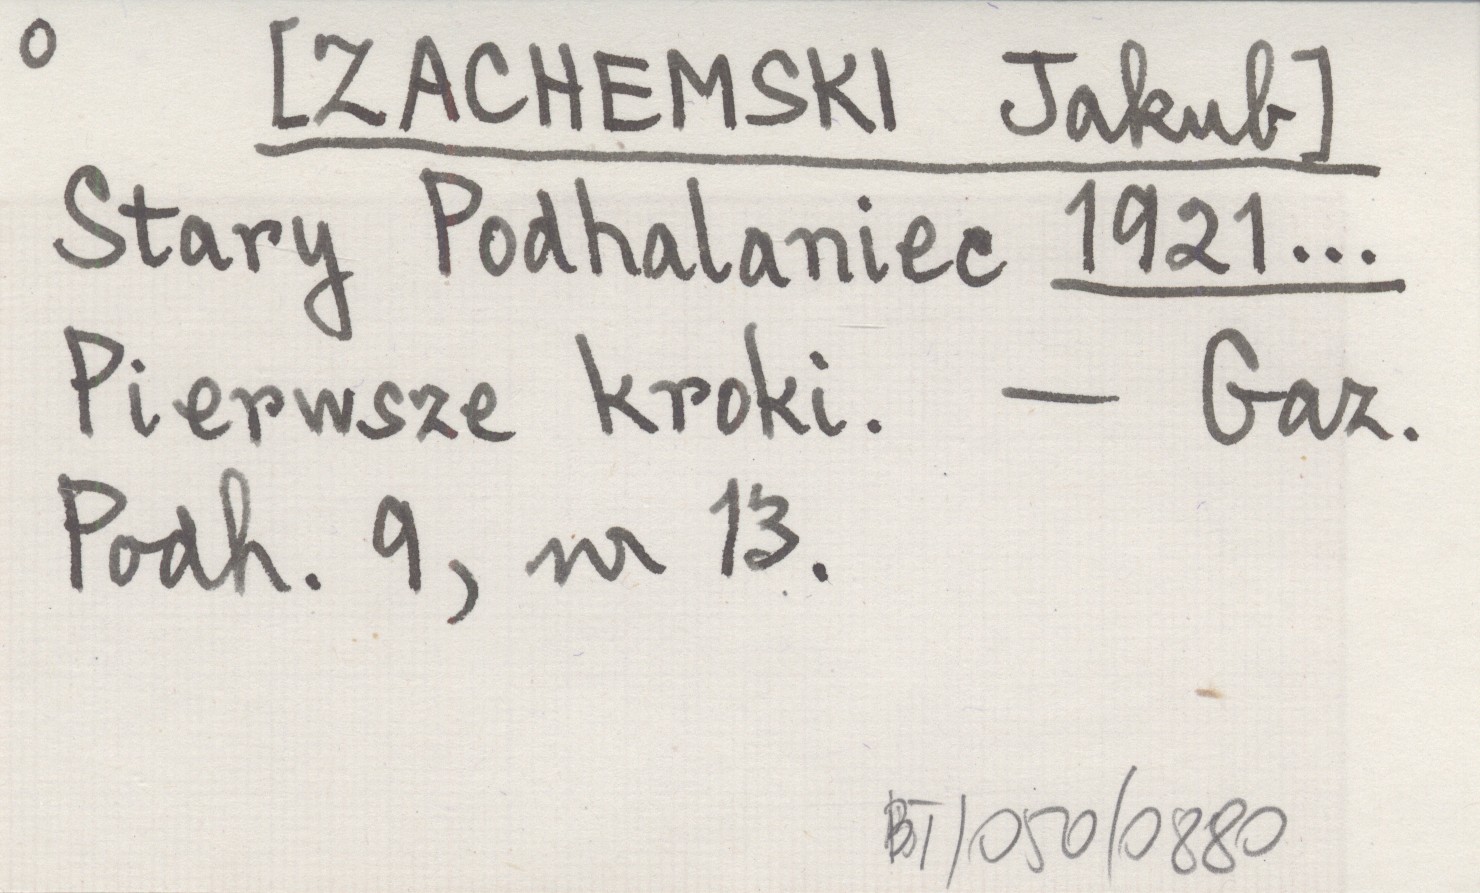 o [ZACHEMSKI Jakub]
Stary Podhalaniec 1921...
Pierwsze kroki. — Gaz.
Podh. 9, nr 13.
BT/050/0880